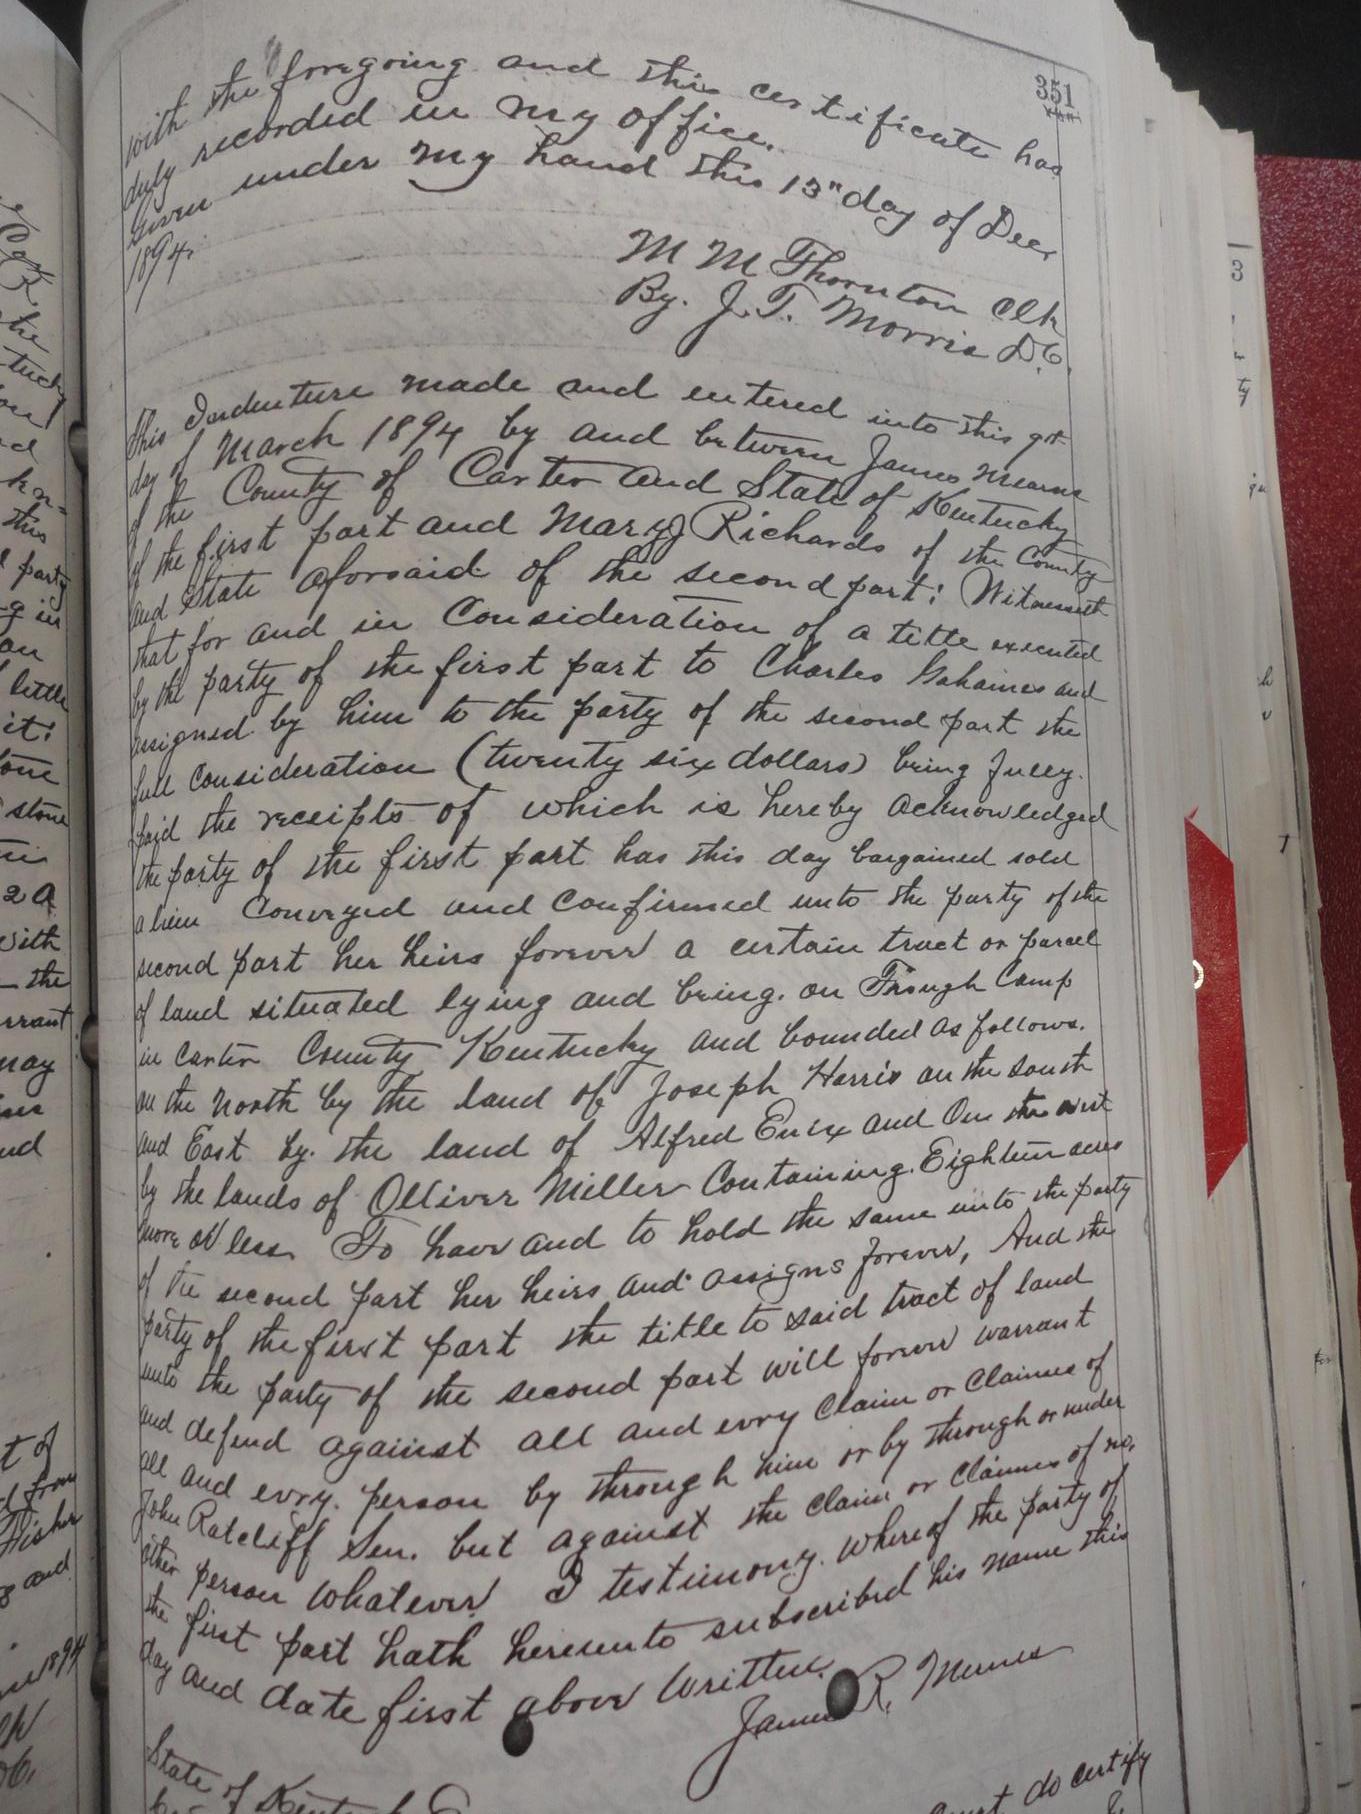 351
with the foregoing and this certificate has
duly recorded in my office.
Given under my hand this 13" day of Decr
1894.
M M Thornton Clk
By. J. T. Morris D.C.
This Indenture made and entered into this
day of March 1894 by and between James Mearns
of the County of Carter and State of Kentucky
of the first part and Mary J Richards of the County
and State aforsaid of the second part: Witnesseth
that for and in Consideration of a title executed
by the party of the first part to Charles and
assigned by him to the party of the second part the
full consideration (twenty six dollars) being fully.
paid the receipts of which is hereby acknowledged
the party of the first part has this day bargained sold
alien Conveyed and confirmed unto the party of the
second part her heirs forever a certain tract or parcel
of land situated lying and being. on Trough Camp
in Carter County Kentucky and bounded as follows.
on the North by the land of Joseph Harris on the South
and East by. the land of Alfred and On the west
by the lands of Olliver Miller Containing. Eighteen acres
more or less To have and to hold the same unto the party
of the second part her heirs and assigns forever, And the
party of the first part the title to said tract of land
unto the party of the second part will forever warrant
and defend against all and evry claim or claimes of
all and evry. person by through him or by through or under
John Ratcliff Sen. but against the claim or claimes of no.
other person whatever I testimony. whereof the party of
the first part hath hereunto subscribed his name this
day and date first above written.
James R. Mearns
State of Kentucky
do certify